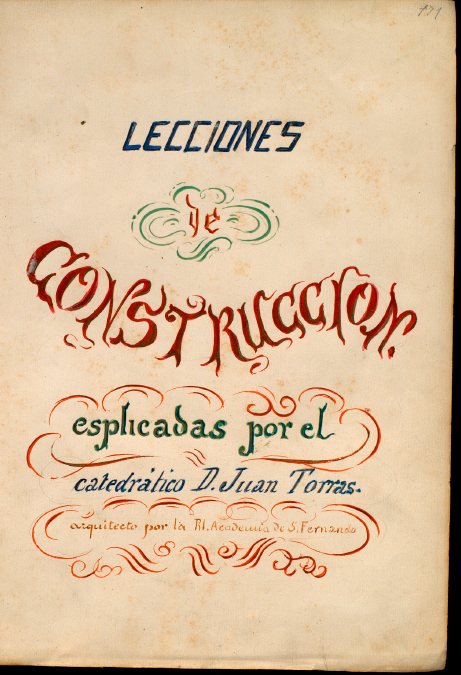 171
LECCIONES
de
CONSTRUCCION.
esplicadas por el
catedrático D. Juan Torras.
arquitecto por la Rl. Academia de S. Fernando